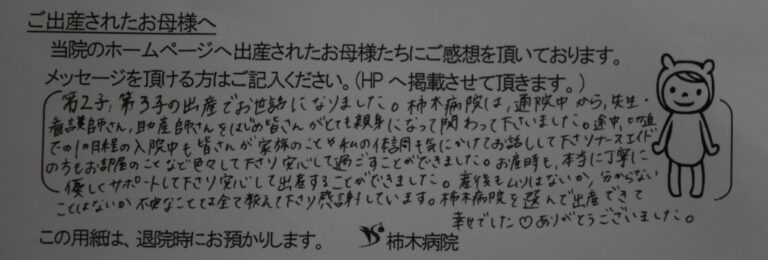 ご出産されたお母様へ
当院のホームページへ出産されたお母様たちにご感想を頂いております。
メッセージを頂ける方はご記入ください。(HPへ掲載させて頂きます。)
第2子,第3子の出産でお世話になりました。柿木病院は,通院中から,先生・
看護師さん,助産師さんをはじめ皆さんがとても親身になって関わって下さいました。途中,切迫
での1か月程の入院中も皆さんが家族のことや私の体調も気にかけてお話しして下さりナースエイド
の方もお部屋のことなど色々して下さり安心して過ごすことができました。お産時も,本当に丁寧に
優しくサポートして下さり安心して出産することができました。産後もムリはないか,分からない
ことはないか不安なことは全て教えて下さり感謝しています。柿木病院を選んで出産できて
幸せでした♡ありがとうございました。
この用紙は、退院時にお預かりします。 柿木病院